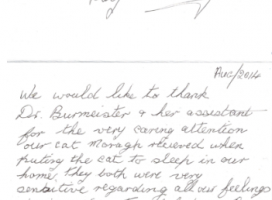 Aug/2014
We would like to thank
Dr. Burmeister & her assistant
for the very caring attention
our cat Moragh recieved when
puting the cat to sleep in our
home they both were very
sensitive regarding all our feelings